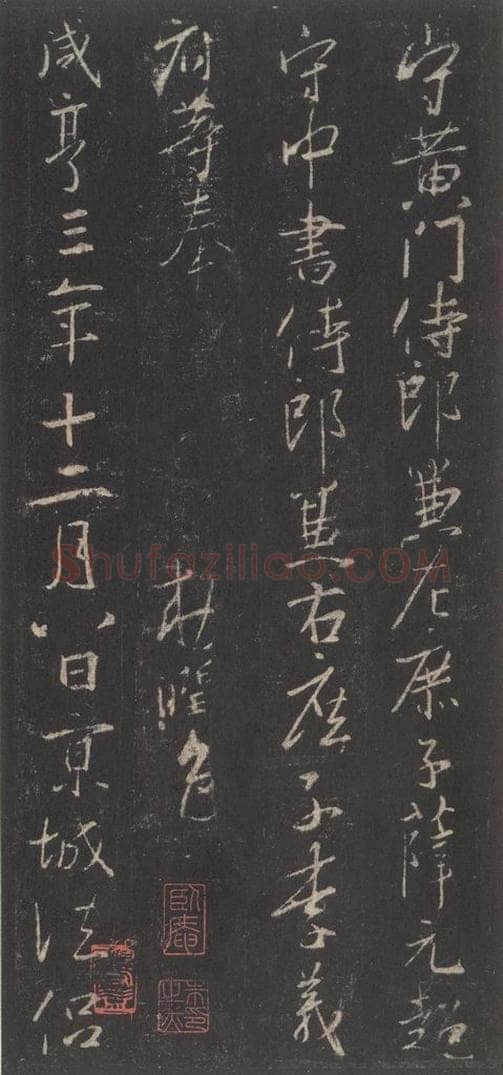 守黄門侍郎兼左庶子薛元超
守中書侍郎兼右庶子李義
府等奉 勑潤色
咸亨三年十二月八日京城法侶
Shufaziliao.COM